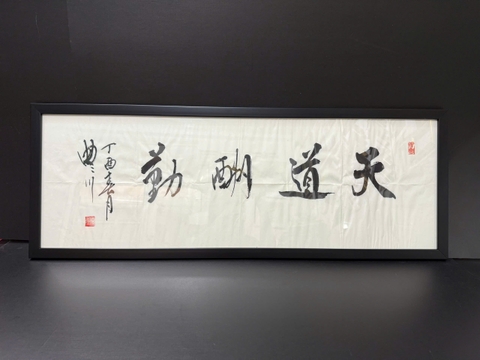 天道酬勤
丁酉春月
川